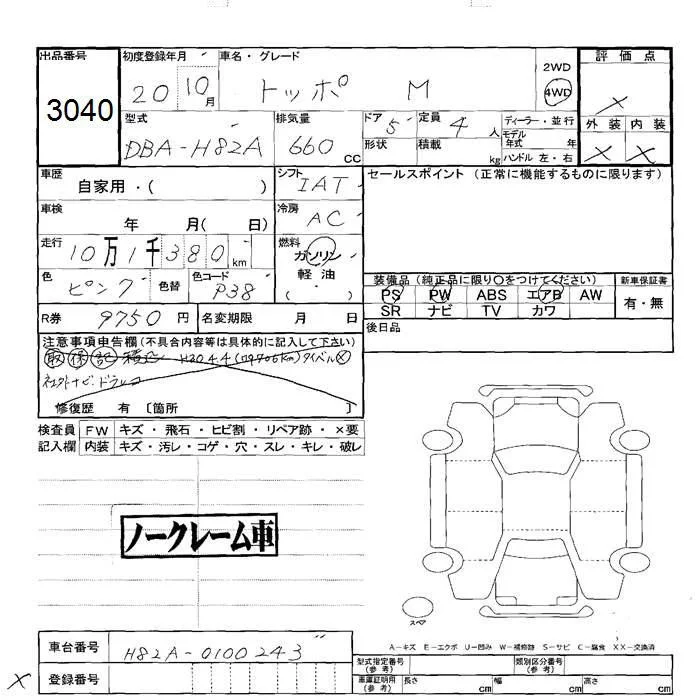 出品番号 初度登録年月 車名・グレード 2WD 評価点
3040 20 10月 トッポ M 4WD ×
型式 排気量 ドア 定員 ディーラー・並行 外装 内装
DBA-H82A 660cc 5 4人 モデル年式 年 × ×
形状 積載 kg ハンドル 左・右
車歴 自家用・( ) シフト IAT セールスポイント (正常に機能するものに限ります)
車検 年 月( 日) 冷房 AC
走行 10万1千380km 燃料 ガソリン
軽油
( )
色 ピンク 色替 色コード P38
装備品 (純正品に限り○をつけてください) 新車保証書
PS PW ABS エアB AW 有・無
SR ナビ TV カワ
R券 9750円 名変期限 月 日 後日品
注意事項申告欄(不具合内容等は具体的に記入して下さい)
取 保 記 H30.4.4
修復歴 有 〔箇所 〕
検査員 FW キズ・飛石・ヒビ割・リペア跡・×要
記入欄 内装 キズ・汚レ・コゲ・穴・スレ・キレ・破レ
ノークレーム車
スペア
A-キズ E-エクボ U-凹み W-補修跡 S-サビ C-腐食 XX-交換済
車台番号 H82A-0100243
× 登録番号
型式指定番号(参考) 類別区分番号(参考)
車庫証明用(参考) 長さ cm 幅 cm 高さ cm